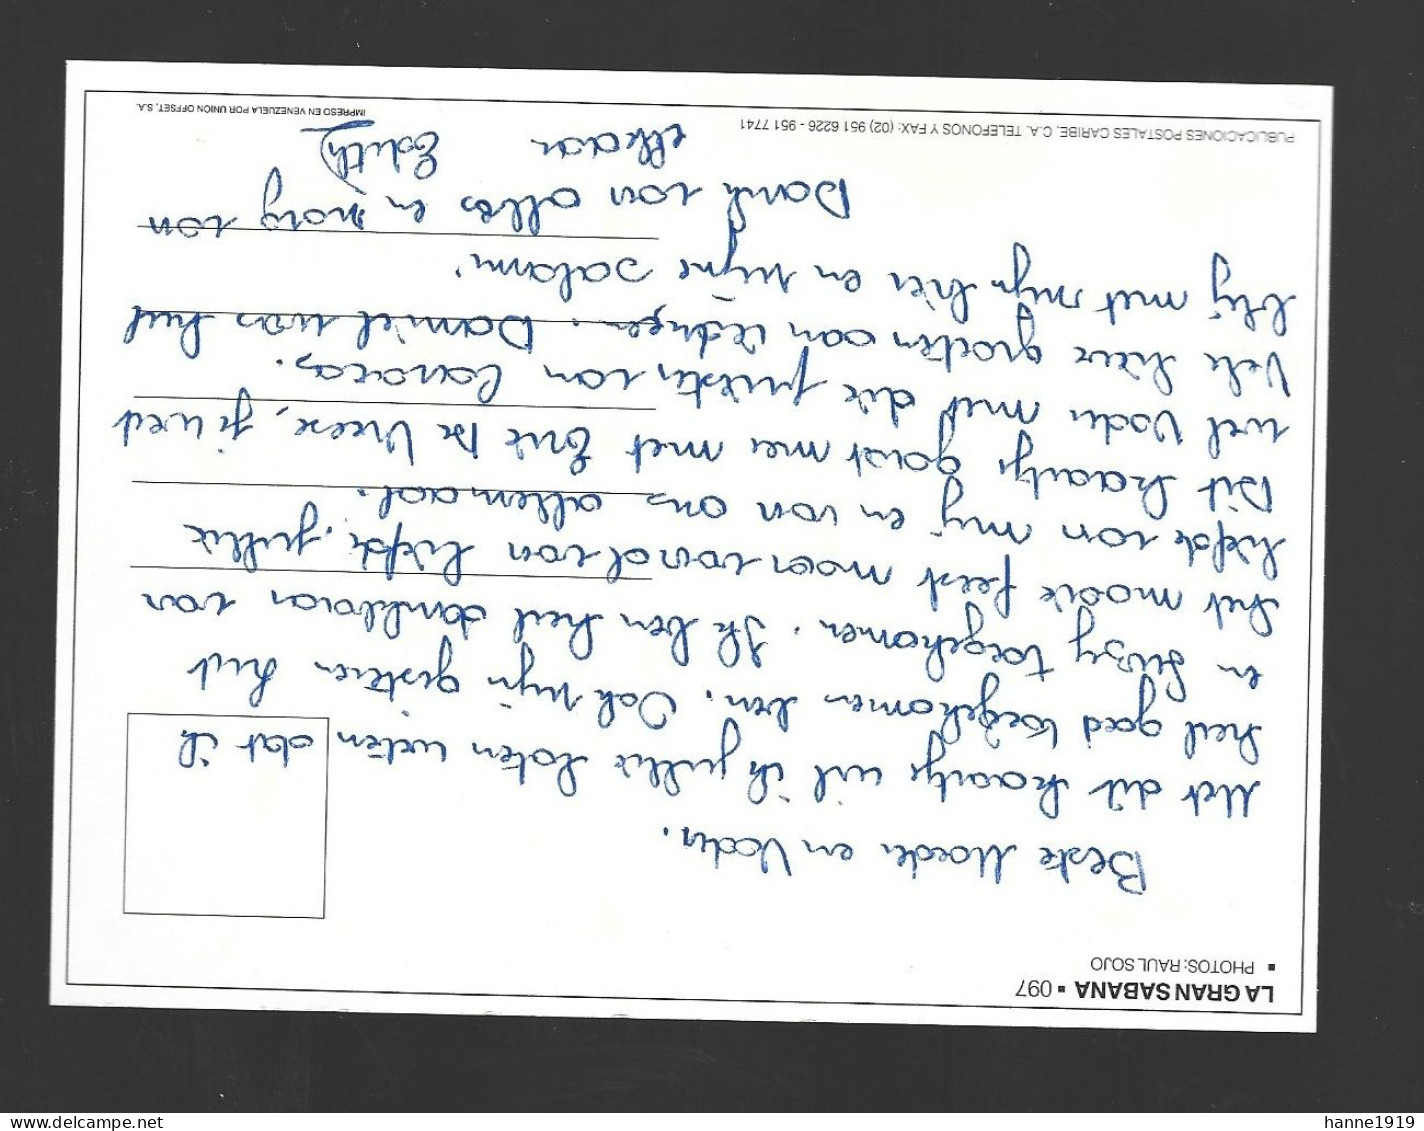 LA GRAN SABANA ▪ 097
▪ PHOTOS: RAUL SOJO
Beste Moeder en Vader,
Met dit kaartje wil ik jullie laten weten dat ik
heel goed toegekomen ben. Ook mijn gisteren het
en Suzy toegekomen. Ik ben heel dankbaar van
het mooie feest maar vooral van liefde, jullie
liefde van mij en van ons allemaal.
Dit kaartje gaat mee met Erik De Vreese, je weet
wel Vader met die priester van Caracas.
Vele lieve groeten aan iedereen. Daniel was heel
blij met mijn bier en mijne salami.
Dank van alles en zorg van
elkaar Edith
PUBLICACIONES POSTALES CARIBE, C.A. TELEFONOS Y FAX: (02) 951 6226 - 951 7741
IMPRESO EN VENEZUELA POR UNION OFFSET, S.A.
www.delcampe.net
hanne1919